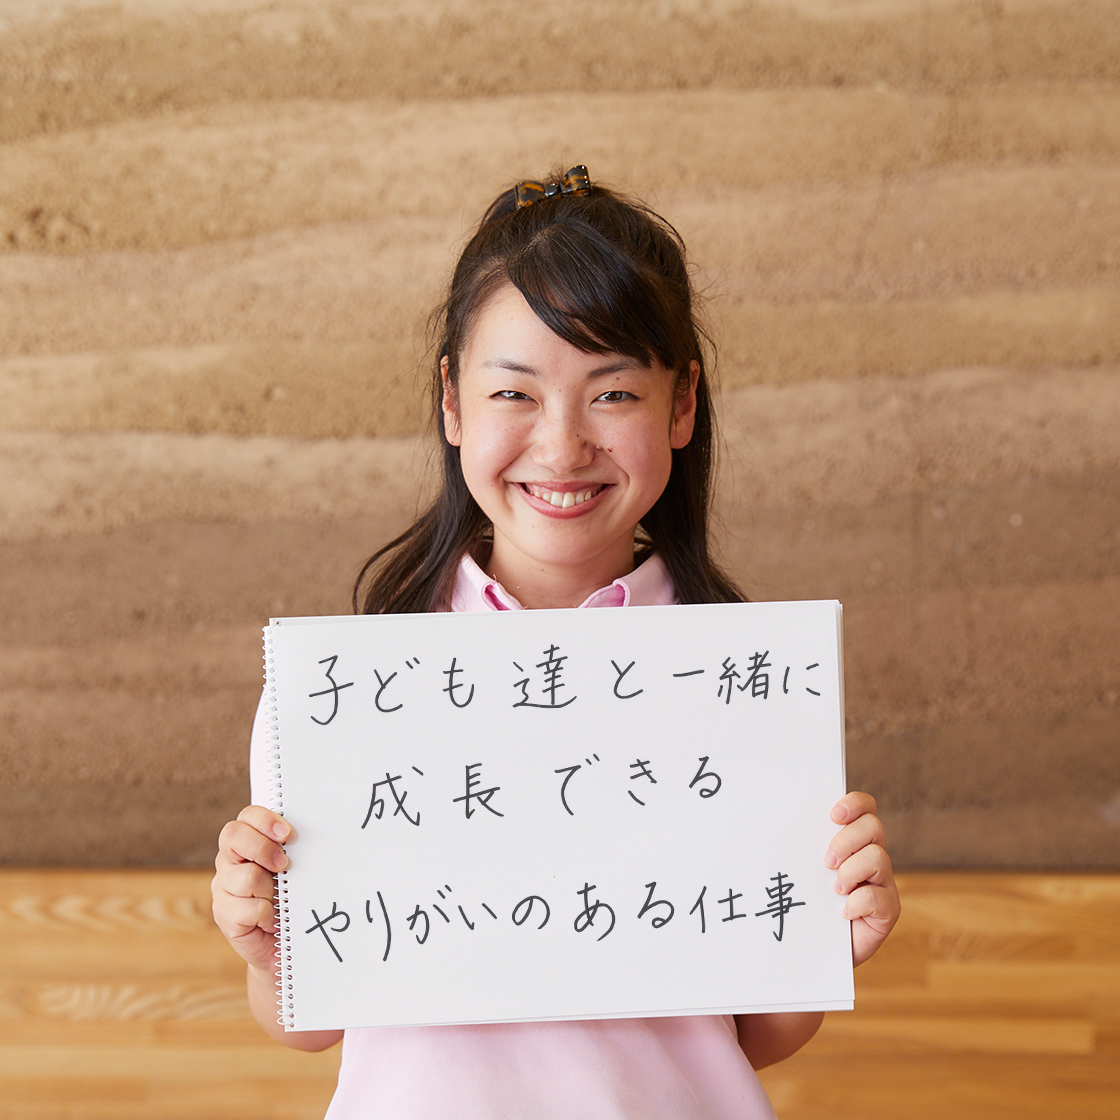 子ども達と一緒に
成長できる
やりがいのある仕事